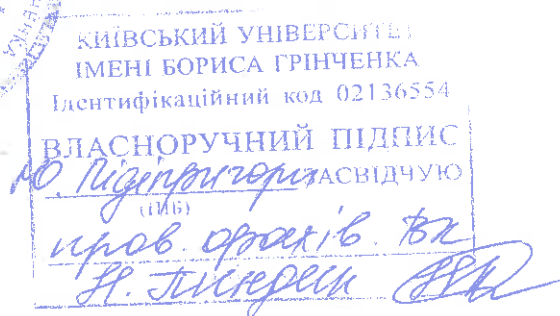 КИЇВСЬКИЙ УНІВЕРСИТЕТ
ІМЕНІ БОРИСА ГРІНЧЕНКА
Ідентифікаційний код 02136554
ВЛАСНОРУЧНИЙ ПІДПИС
Ю. Підіпригори ЗАСВІДЧУЮ
(ПІБ)
пров. фахів. ВК
Н.